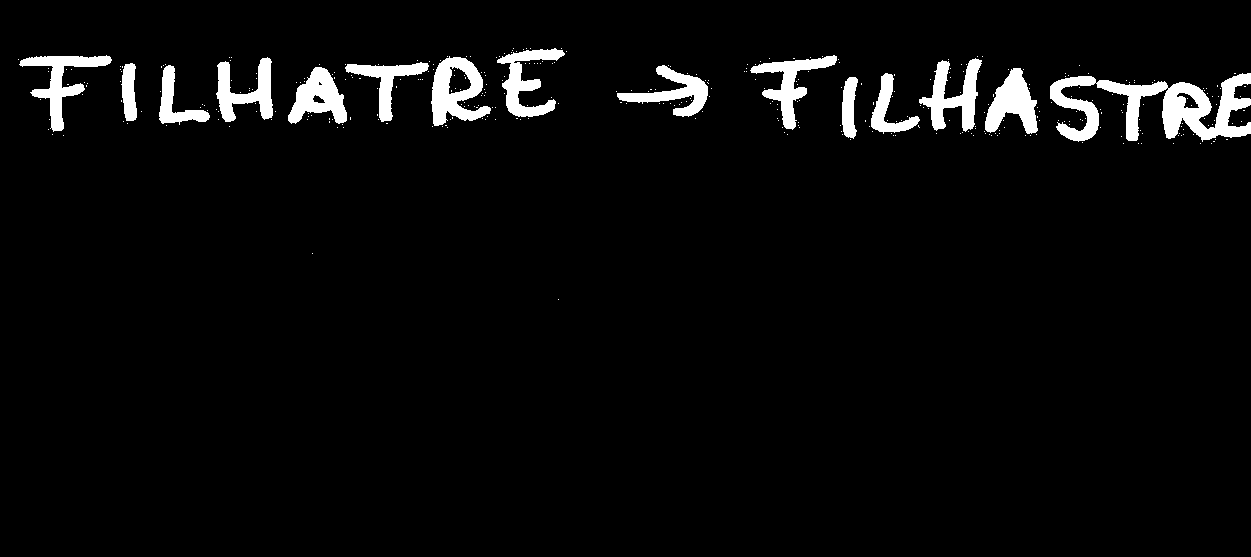 FILHATRE → FILHASTRE